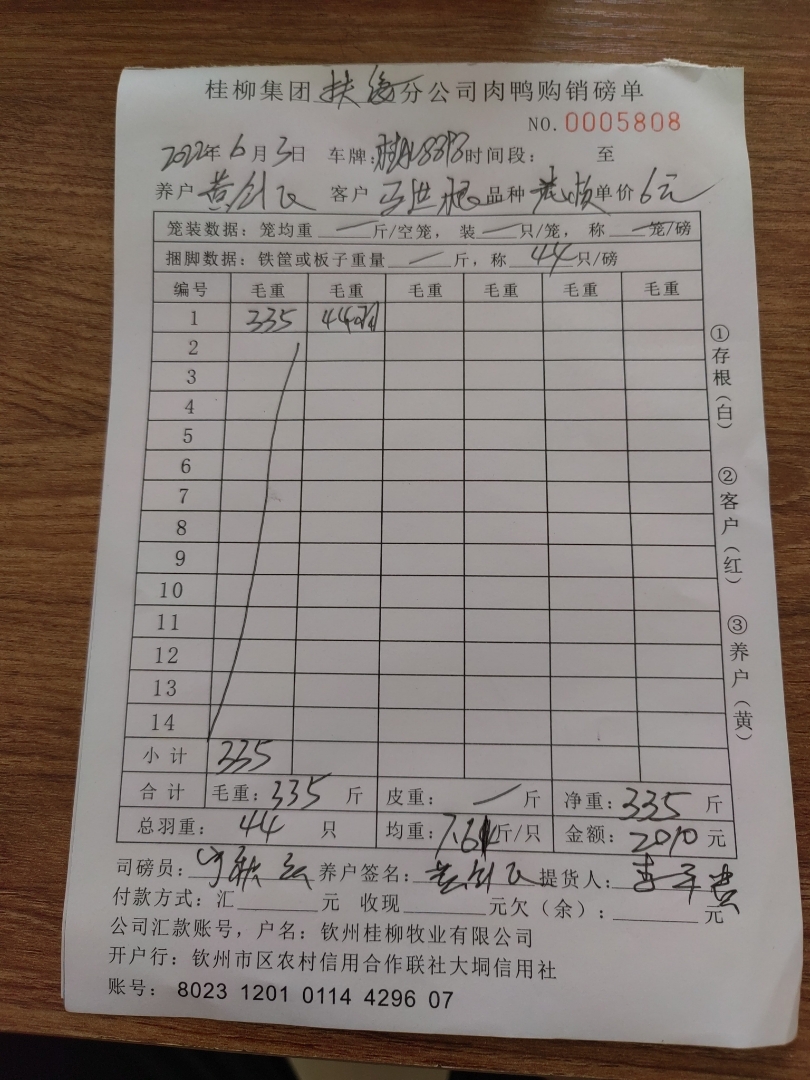 桂柳集团扶绥分公司肉鸭购销磅单
NO.0005808
2022年6月3日 车牌: 时间段: 至
养户 黄 客户 马洪根 品种 单价6元
笼装数据：笼均重 — 斤/空笼，装 — 只/笼，称 — 笼/磅
捆脚数据：铁筐或板子重量 — 斤，称 44只/磅
编号 毛重 毛重 毛重 毛重 毛重 毛重
1 335 44羽
2
3
4
5
6
7
8
9
10
11
12
13
14
小计 335
合计 毛重：335 斤 皮重： — 斤 净重：335 斤
总羽重：44 只 均重：7.61斤/只 金额：2010元
司磅员： 养户签名：黄 提货人：李
付款方式：汇 元 收现 元欠（余）： 元
公司汇款账号，户名：钦州桂柳牧业有限公司
开户行：钦州市区农村信用合作联社大垌信用社
账号： 8023 1201 0114 4296 07
①存根（白）
②客户（红）
③养户（黄）